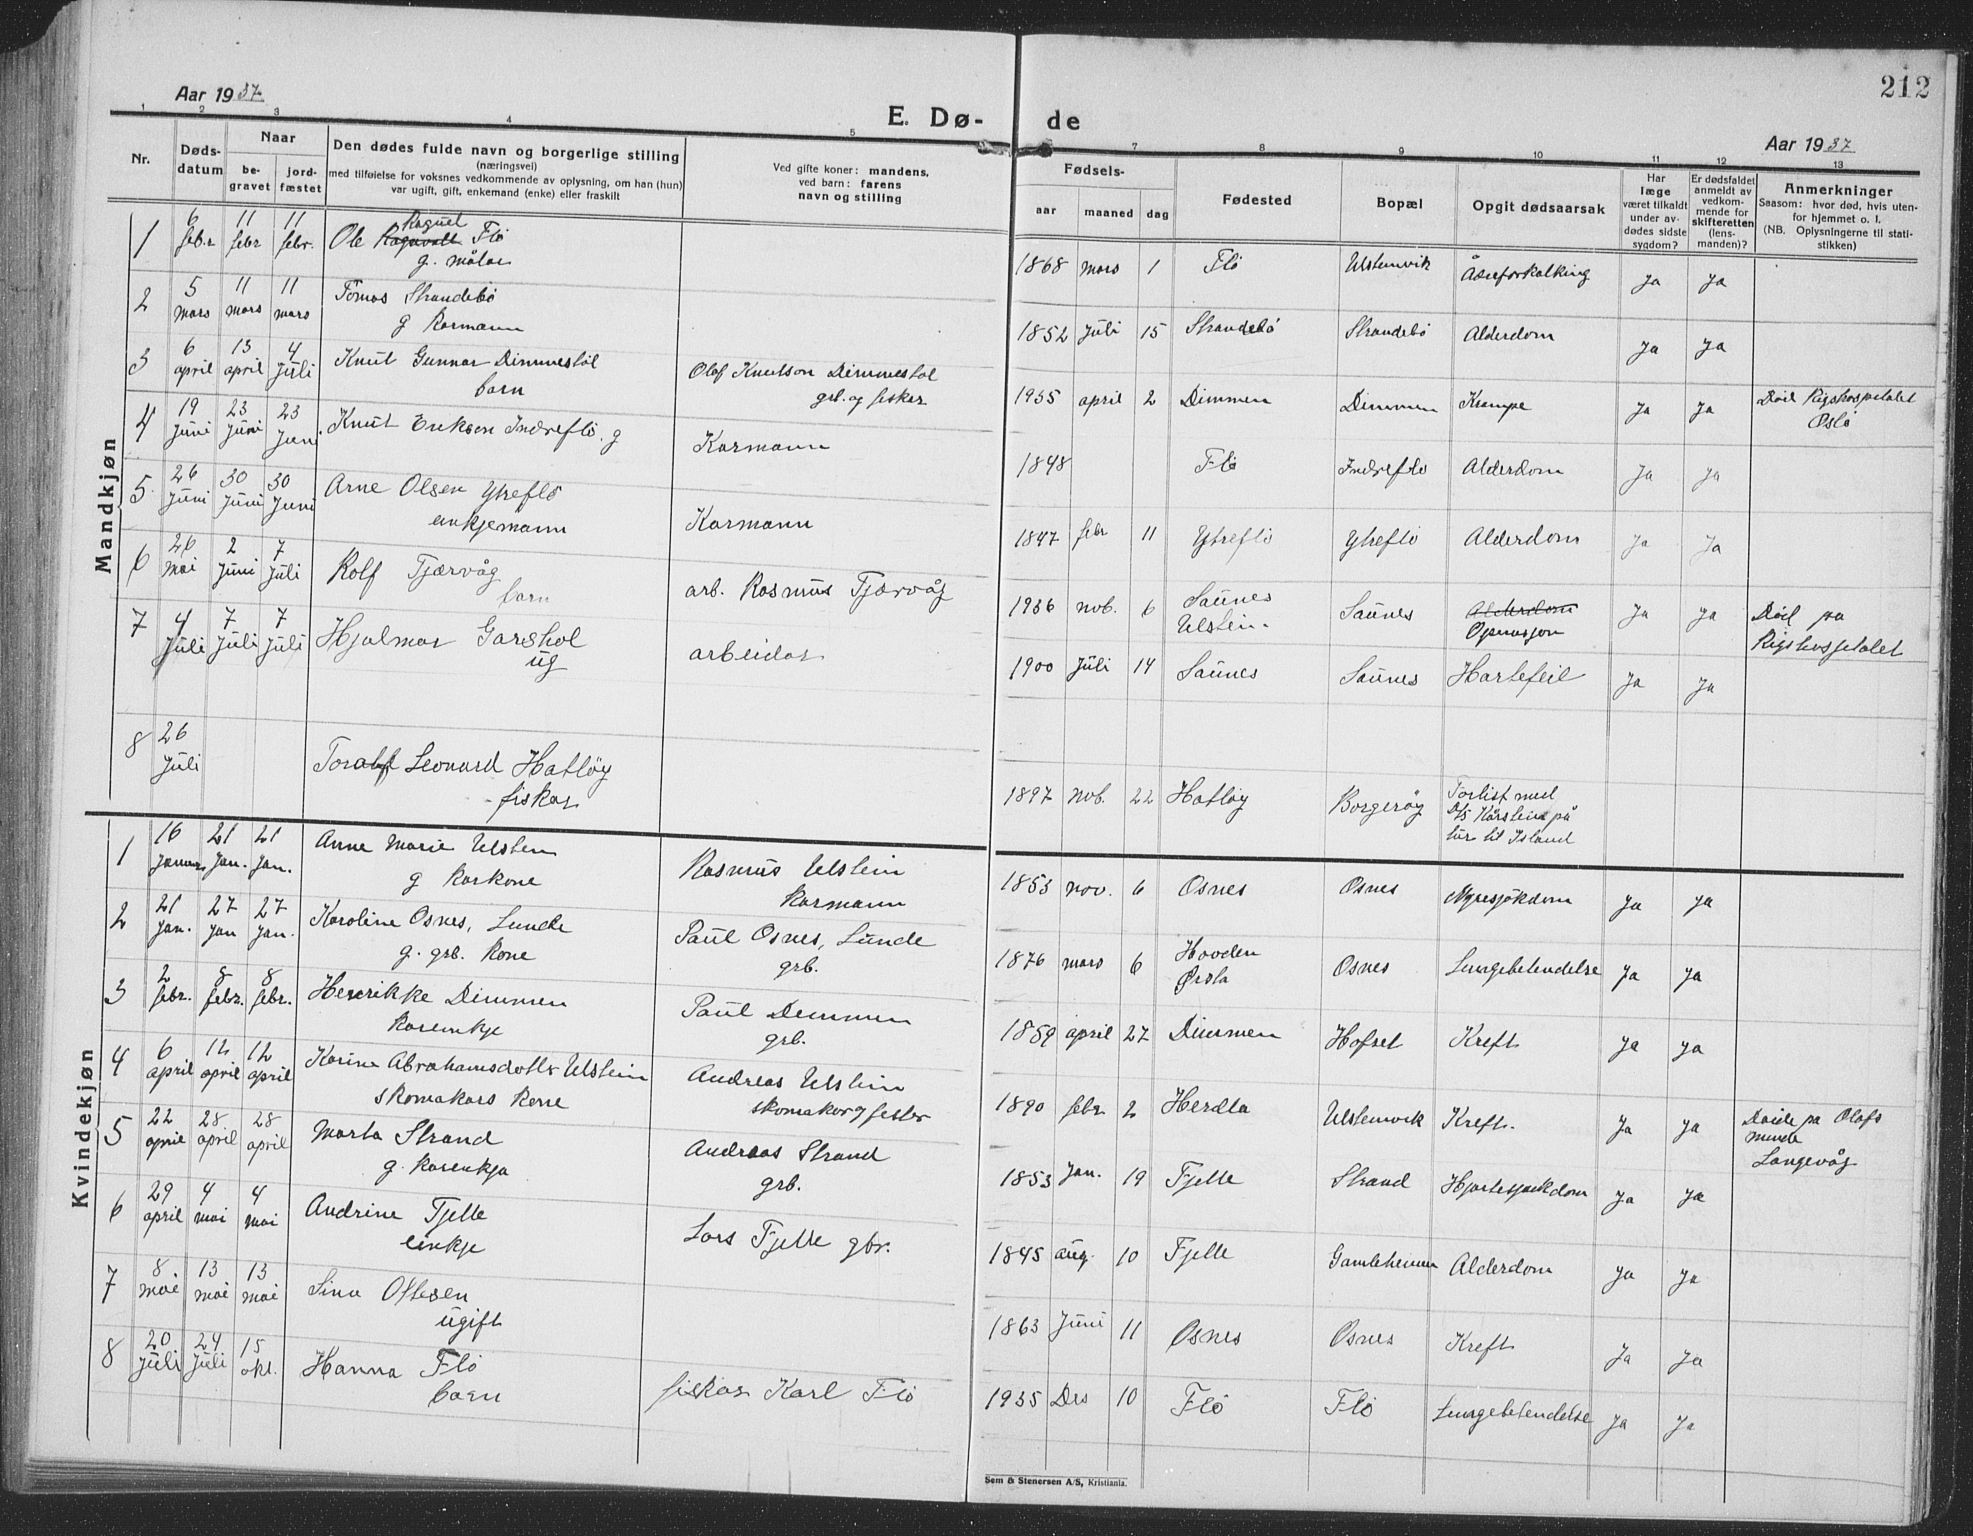 212
Aar 1937
E. Dø-
de
Aar 1937
1 2 3 4 5 7 8 9 10 11 12 13
Nr.
Døds-
datum
Naar
be-
gravet
jord-
fæstet
Den dødes fulde navn og borgerlige stilling
(næringsvei)
med tilføielse for voksnes vedkommende av oplysning, om han (hun)
var ugift, gift, enkemand (enke) eller fraskilt
Ved gifte koner: mandens,
ved barn: farens
navn og stilling
Fødsels-
aar maaned dag
Fødested
Bopæl
Opgit dødsaarsak
Har
læge
været tilkaldt
under av-
dødes sidste
sygdom?
Er dødsfaldet
anmeldt av
vedkom-
mende for
skifteretten
(lens-
manden)?
Anmerkninger
Saasom: hvor død, hvis uten-
for hjemmet o. l.
(NB. Oplysningerne til stati-
stikken)
Mandkjøn
1 6 febr 11 febr 11 febr. Ole Raguel Flø
g. målar
1868 mars 1 Flø Ulsteinvik Åreforkalking Ja Ja
2 5 mars 11 mars 11 mars Tomas Strandebø
g Kormann
1852 Juli 15 Strandebø Strandebø Alderdom Ja Ja
3 6 april 13 april 4 Juli Knut Gunnar Dimmestøl
barn
Olaf Knutson Dimmestøl
grb. og fiskar
1935 april 2 Dimmen Dimmen Krampe Ja Ja Død Rigshospitalet
Oslo
4 19 Juni 23 Juni 23 Juni Knut Eriksen Indreflø. g
Karmann
1848 Flø Indreflø Alderdom Ja Ja
5 26 Juni 30 Juni 30 Juni Arne Olsen Ytreflø
enkjemann
Karmann
1847 febr 11 Ytreflø Ytreflø Alderdom Ja Ja
6 26 mai 2 Juni 7 Juli Rolf Tjærvåg
barn
arb. Rasmus Tjærvåg
1936 nov. 6 Saunes
Ulstein. Saunes Alderdom
Operasjon Ja Ja Død pa
Rigshospitalet
7 4 Juli 7 Juli 7 Juli Hjalmar Garshol
ug
arbeidar
1900 Juli 14 Saunes Saunes Hartefeil Ja Ja
8 26 Juli Toralf Leonard Hatløy
fiskar
1897 nov. 22 Hatløy Borgarøy Forlist med
D/s Kårstein på
tur til Island
Kvindekjøn
1 16 Januar 21 Jan. 21 Jan. Anne Marie Ulstein
g Karkone
Rasmus Ulstein
Karmann
1853 nov. 6 Osnes Osnes Nyresjökdom Ja Ja
2 21 Jan. 27 Jan 27 Jan. Karoline Osnes, Lunde
g. grb. Kone
Paul Osnes, Lunde
grb.
1876 mars 6 Hovden
Ørsta Osnes Lungebetendelse Ja Ja
3 2 febr. 8 febr. 8 febr. Henrikke Dimmen
Karenkje
Paul Dimmen
grb.
1859 april 27 Dimmen Hofset Kreft Ja Ja
4 6 april 12 april 12 april Karine Abrahamsdotter Ulstein
Skomakars Kone
Andreas Ulstein
skomakar
1890 febr 2 Herdla Ulsteinvik Kreft. Ja Ja Døde pa Olafs
minde
Langevåg
5 22 april 28 april 28 april Marta Strand
g. Karenkja
Andreas Strand
grb.
1853 Jan. 19 Fjelle Strand Hjartesjukdom Ja Ja
6 29 april 4 mai 4 mai Andrine Fjelle
enkje
Lars Fjelle gbr.
1845 aug. 10 Fjelle Gamleheimen Alderdom Ja Ja
7 8 mai 13 mai 13 mai Sina Ottesen
ugift
1863 Juni 11 Osnes Osnes Kreft Ja Ja
8 20 Juli 24 Juli 15 okt. Hanna Flø
barn
fiskar Karl Flø
1935 Des 10 Flø Flø Lungebetendelse Ja Ja
Sem & Stenersen A/S, Kristiania.